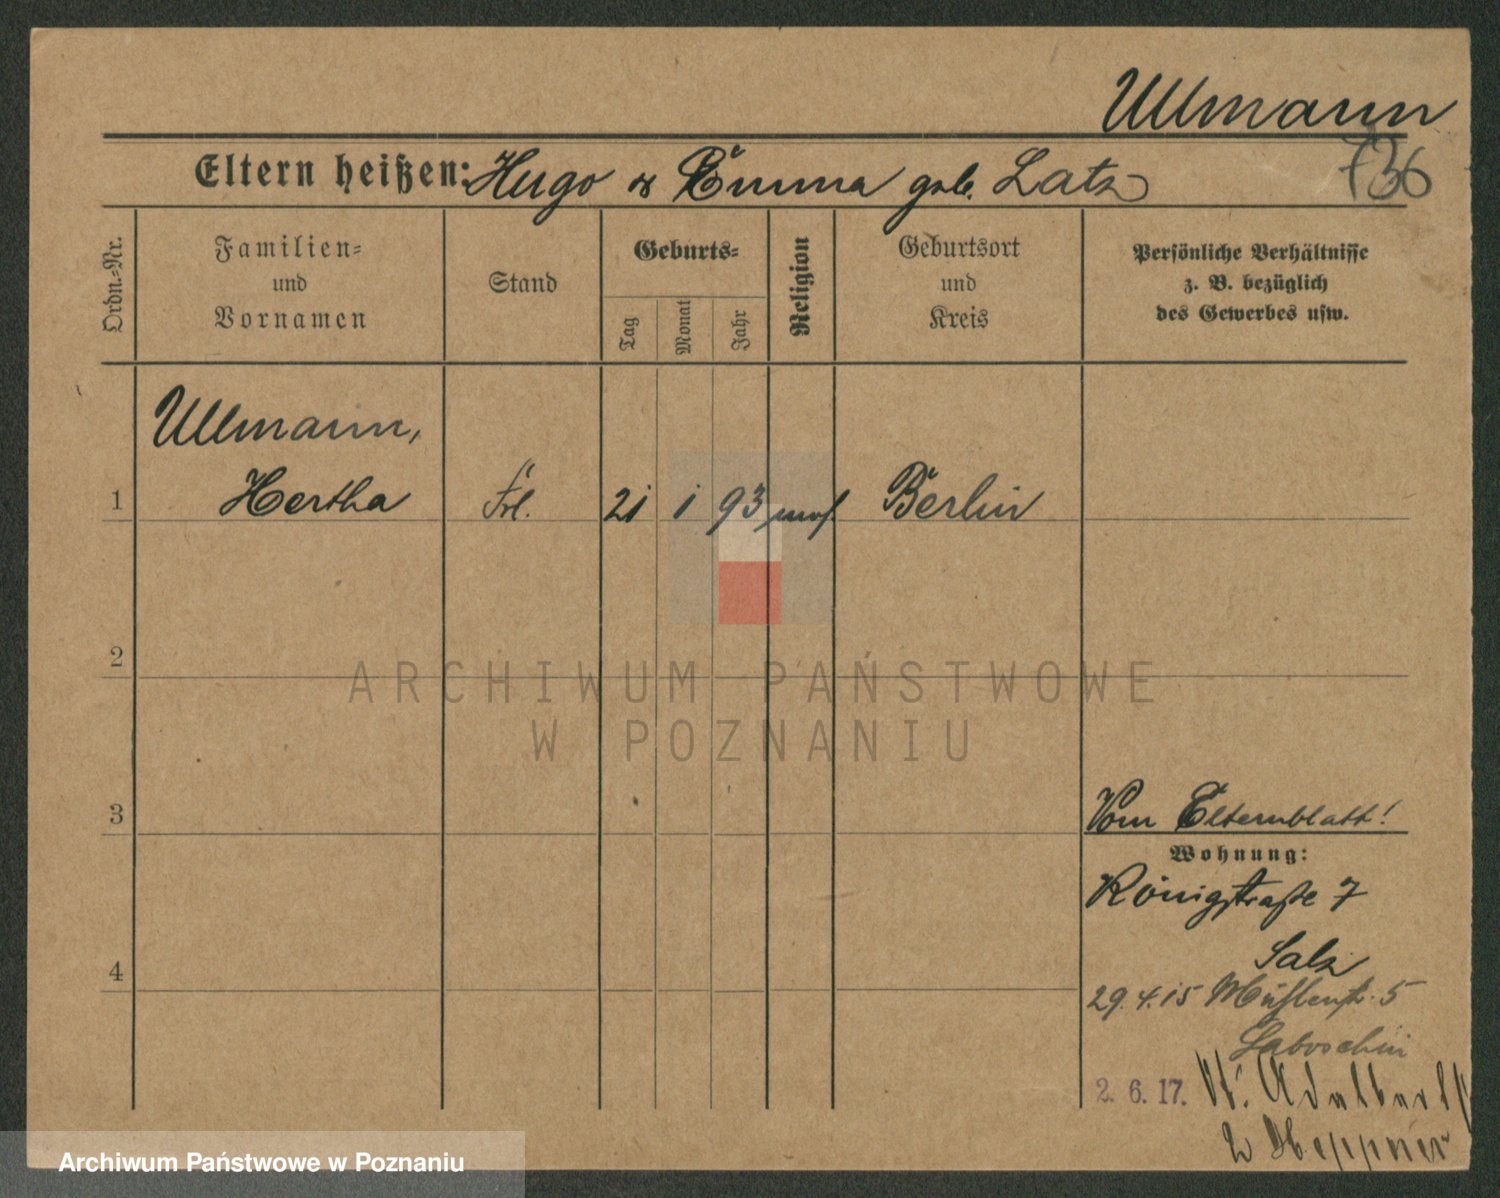 Ullmann
736
Eltern heißen: Hugo & Emma geb. Latz
Ordn.-Nr.
Familien-
und
Vornamen
Stand
Geburts-
Tag
Monat
Jahr
Religion
Geburtsort
und
Kreis
Persönliche Verhältnisse
z. B. bezüglich
des Gewerbes usw.
Ullmann,
1 Hertha Frl. 21 1 93 mos. Berlin
2
ARCHIWUM PAŃSTWOWE
W POZNANIU
3
Vom Elternblatt!
Wohnung:
Königstraße 7
Salz
4
29.4.15 Mühlenstr. 5
Laboschin
2. 6. 17. St. Adalbert
2 Heppner
Archiwum Państwowe w Poznaniu